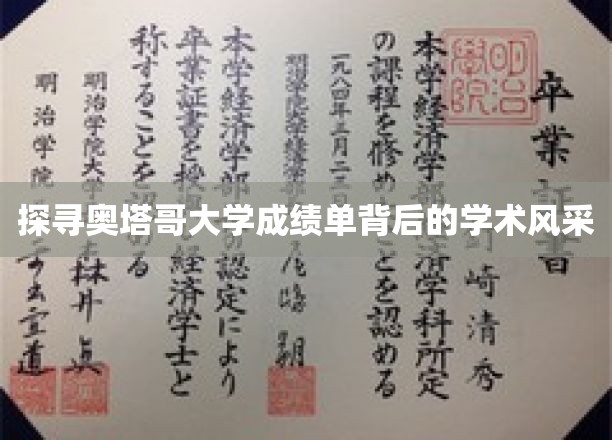 明治学院
卒業 書
崎清秀
本学経済学部 済学科所定
の課程を修め ことを認める
一九八四年三月二
明治学院大学経済学部
本学経済学部 の認定により
卒業証書を授 経済学士と
称することを認 る
明治学院大学 井眞
明治学院 道
探寻奥塔哥大学成绩单背后的学术风采